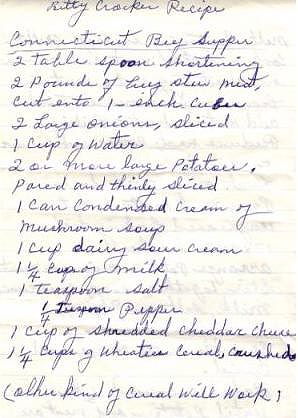 Betty Crocker Recipe
Connecticut Beef Supper
2 table spoon shortening
2 Pounds of beef stew meat,
cut into 1-inch cubes
2 Large onions, sliced
1 cup of water
2 or more large Potatoes.
Pared and thinly sliced
1 Can Condensed cream of
mushroom soup
1 cup dairy sour cream
1 1/4 cup of milk
1 teaspoon salt
1/4 teaspoon Pepper
1 cup of shredded cheddar cheese
1 1/4 cups of Wheaties Cereal, crushed
(other kind of cereal will work)